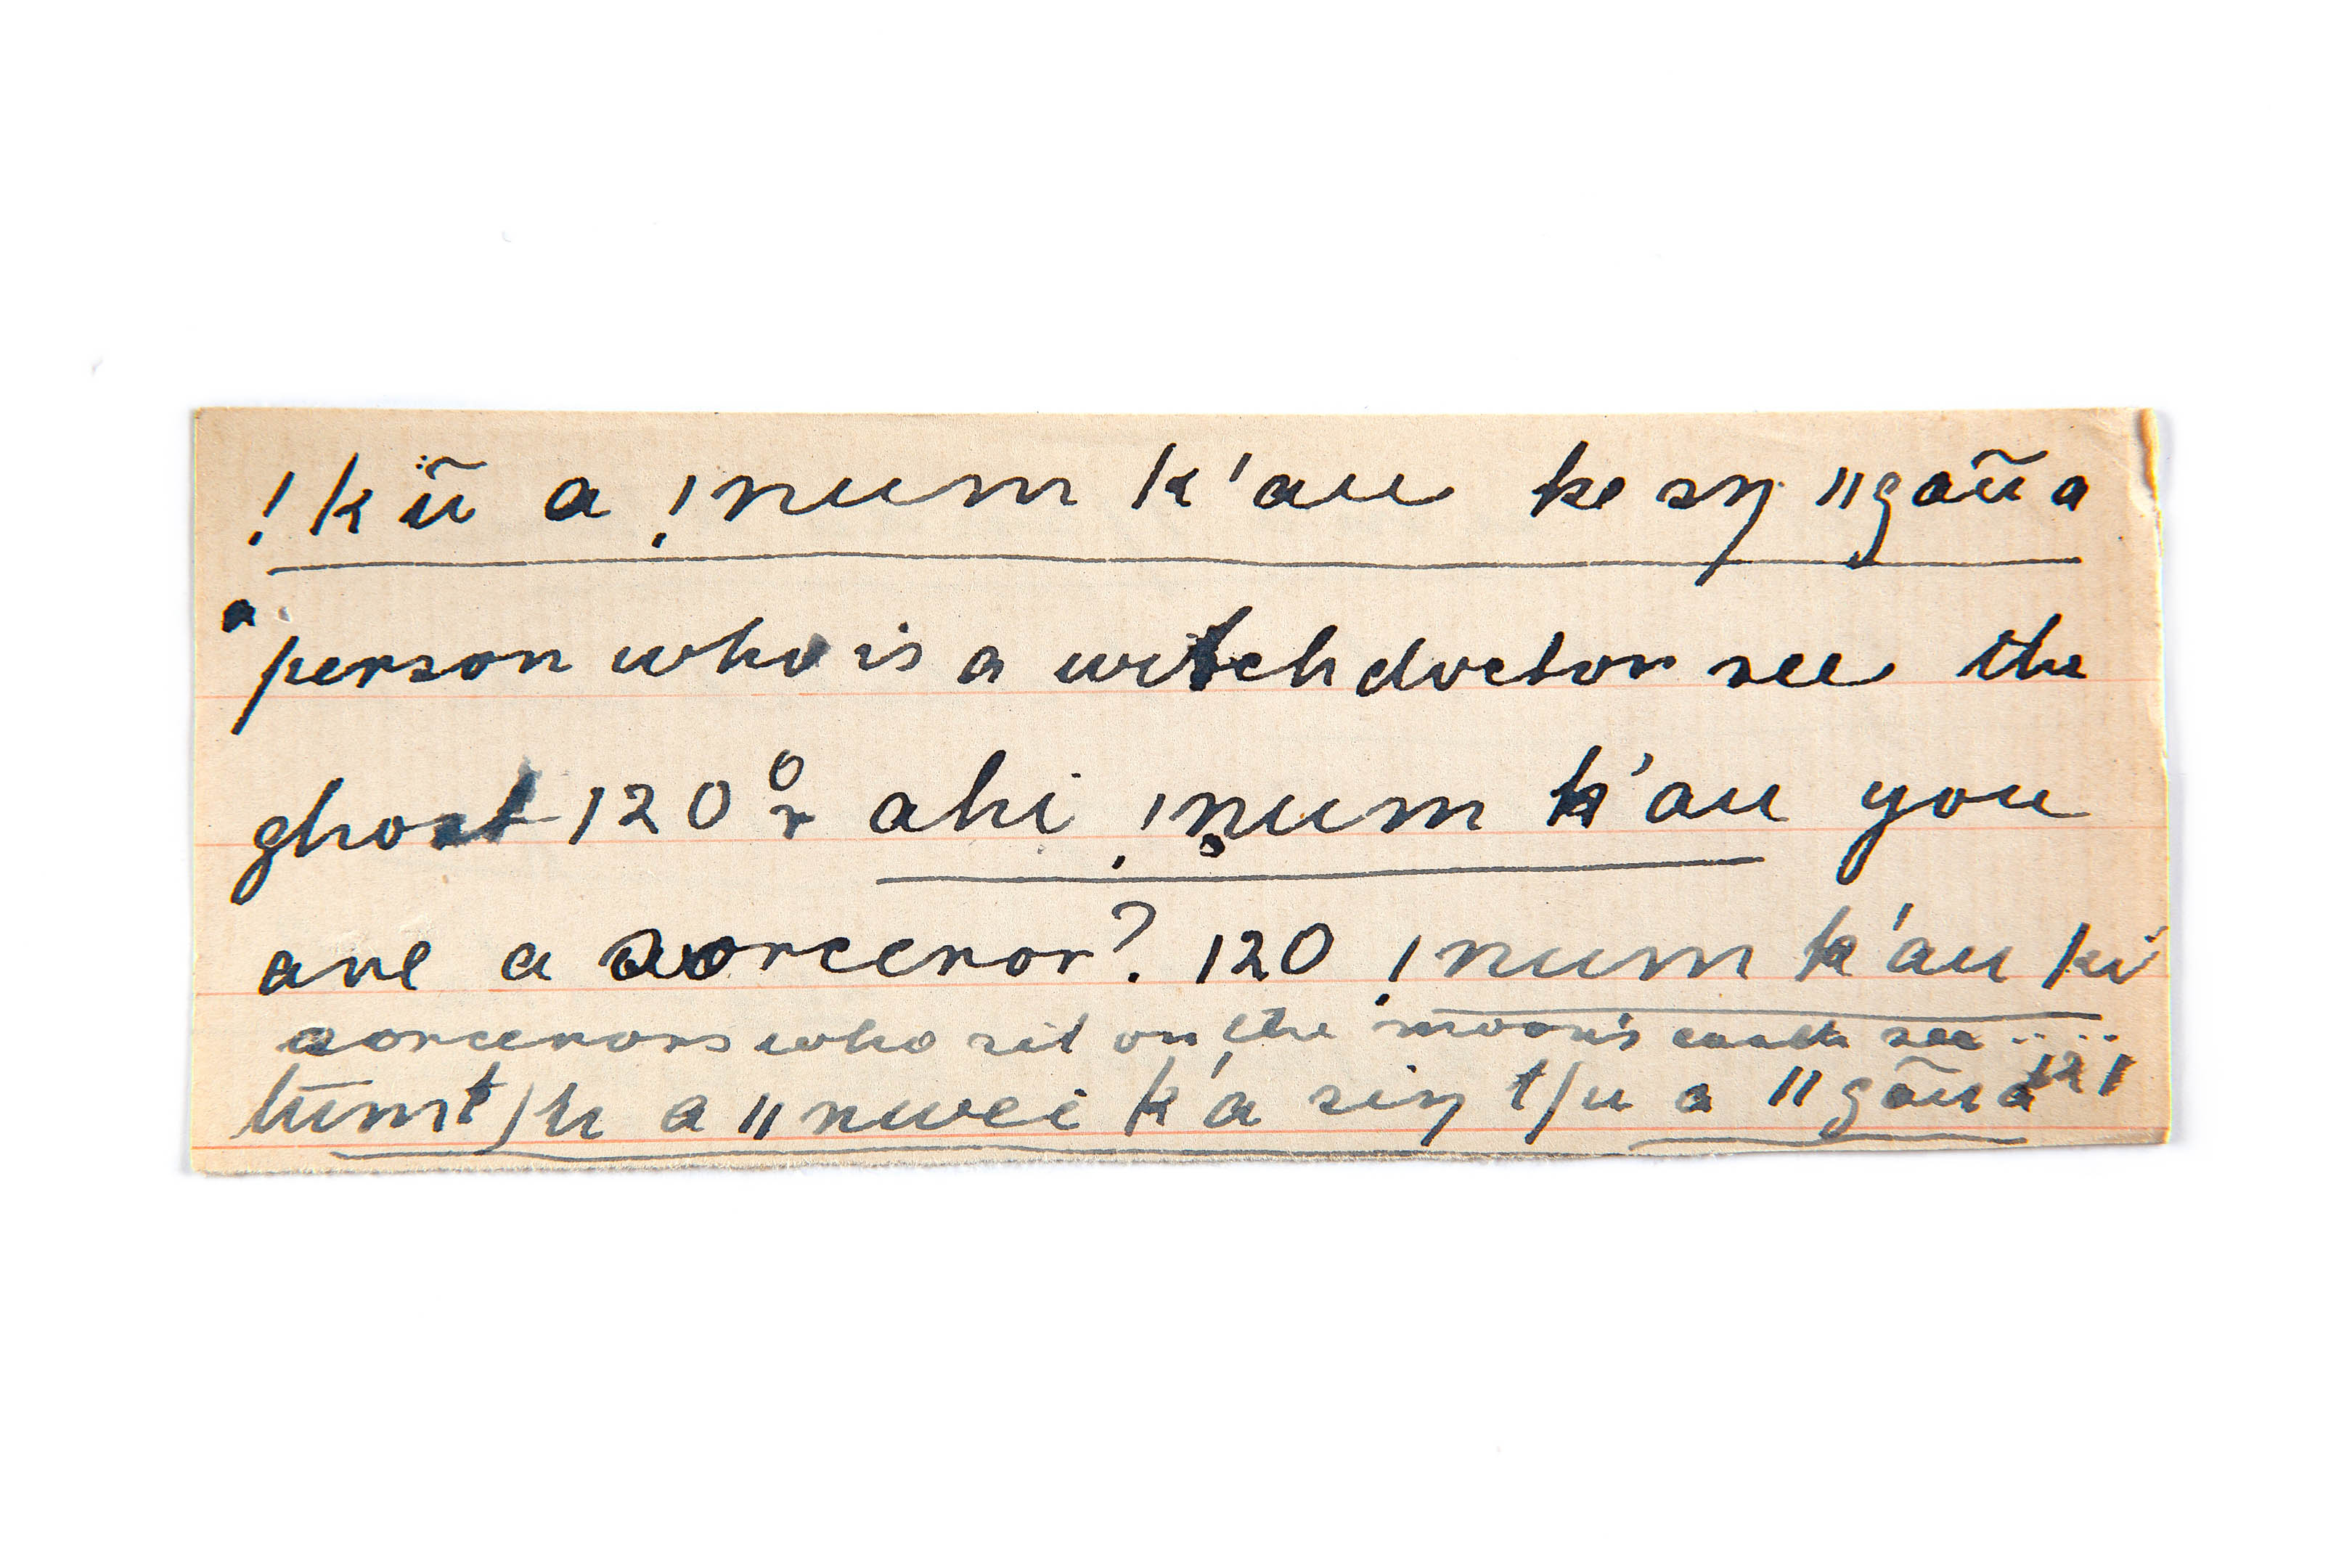 !kü̃ a !num k'au ke sŋ ǁgaũa
a person who is a witchdoctor see the
ghost 120 or ahi !num k'au you
are a sorceror? 120 !num k'au ki
sorcerors who sit on the moon's earth see ....
tumt/h a ǁnwei k'a siŋ t/u a ǁgãua 121